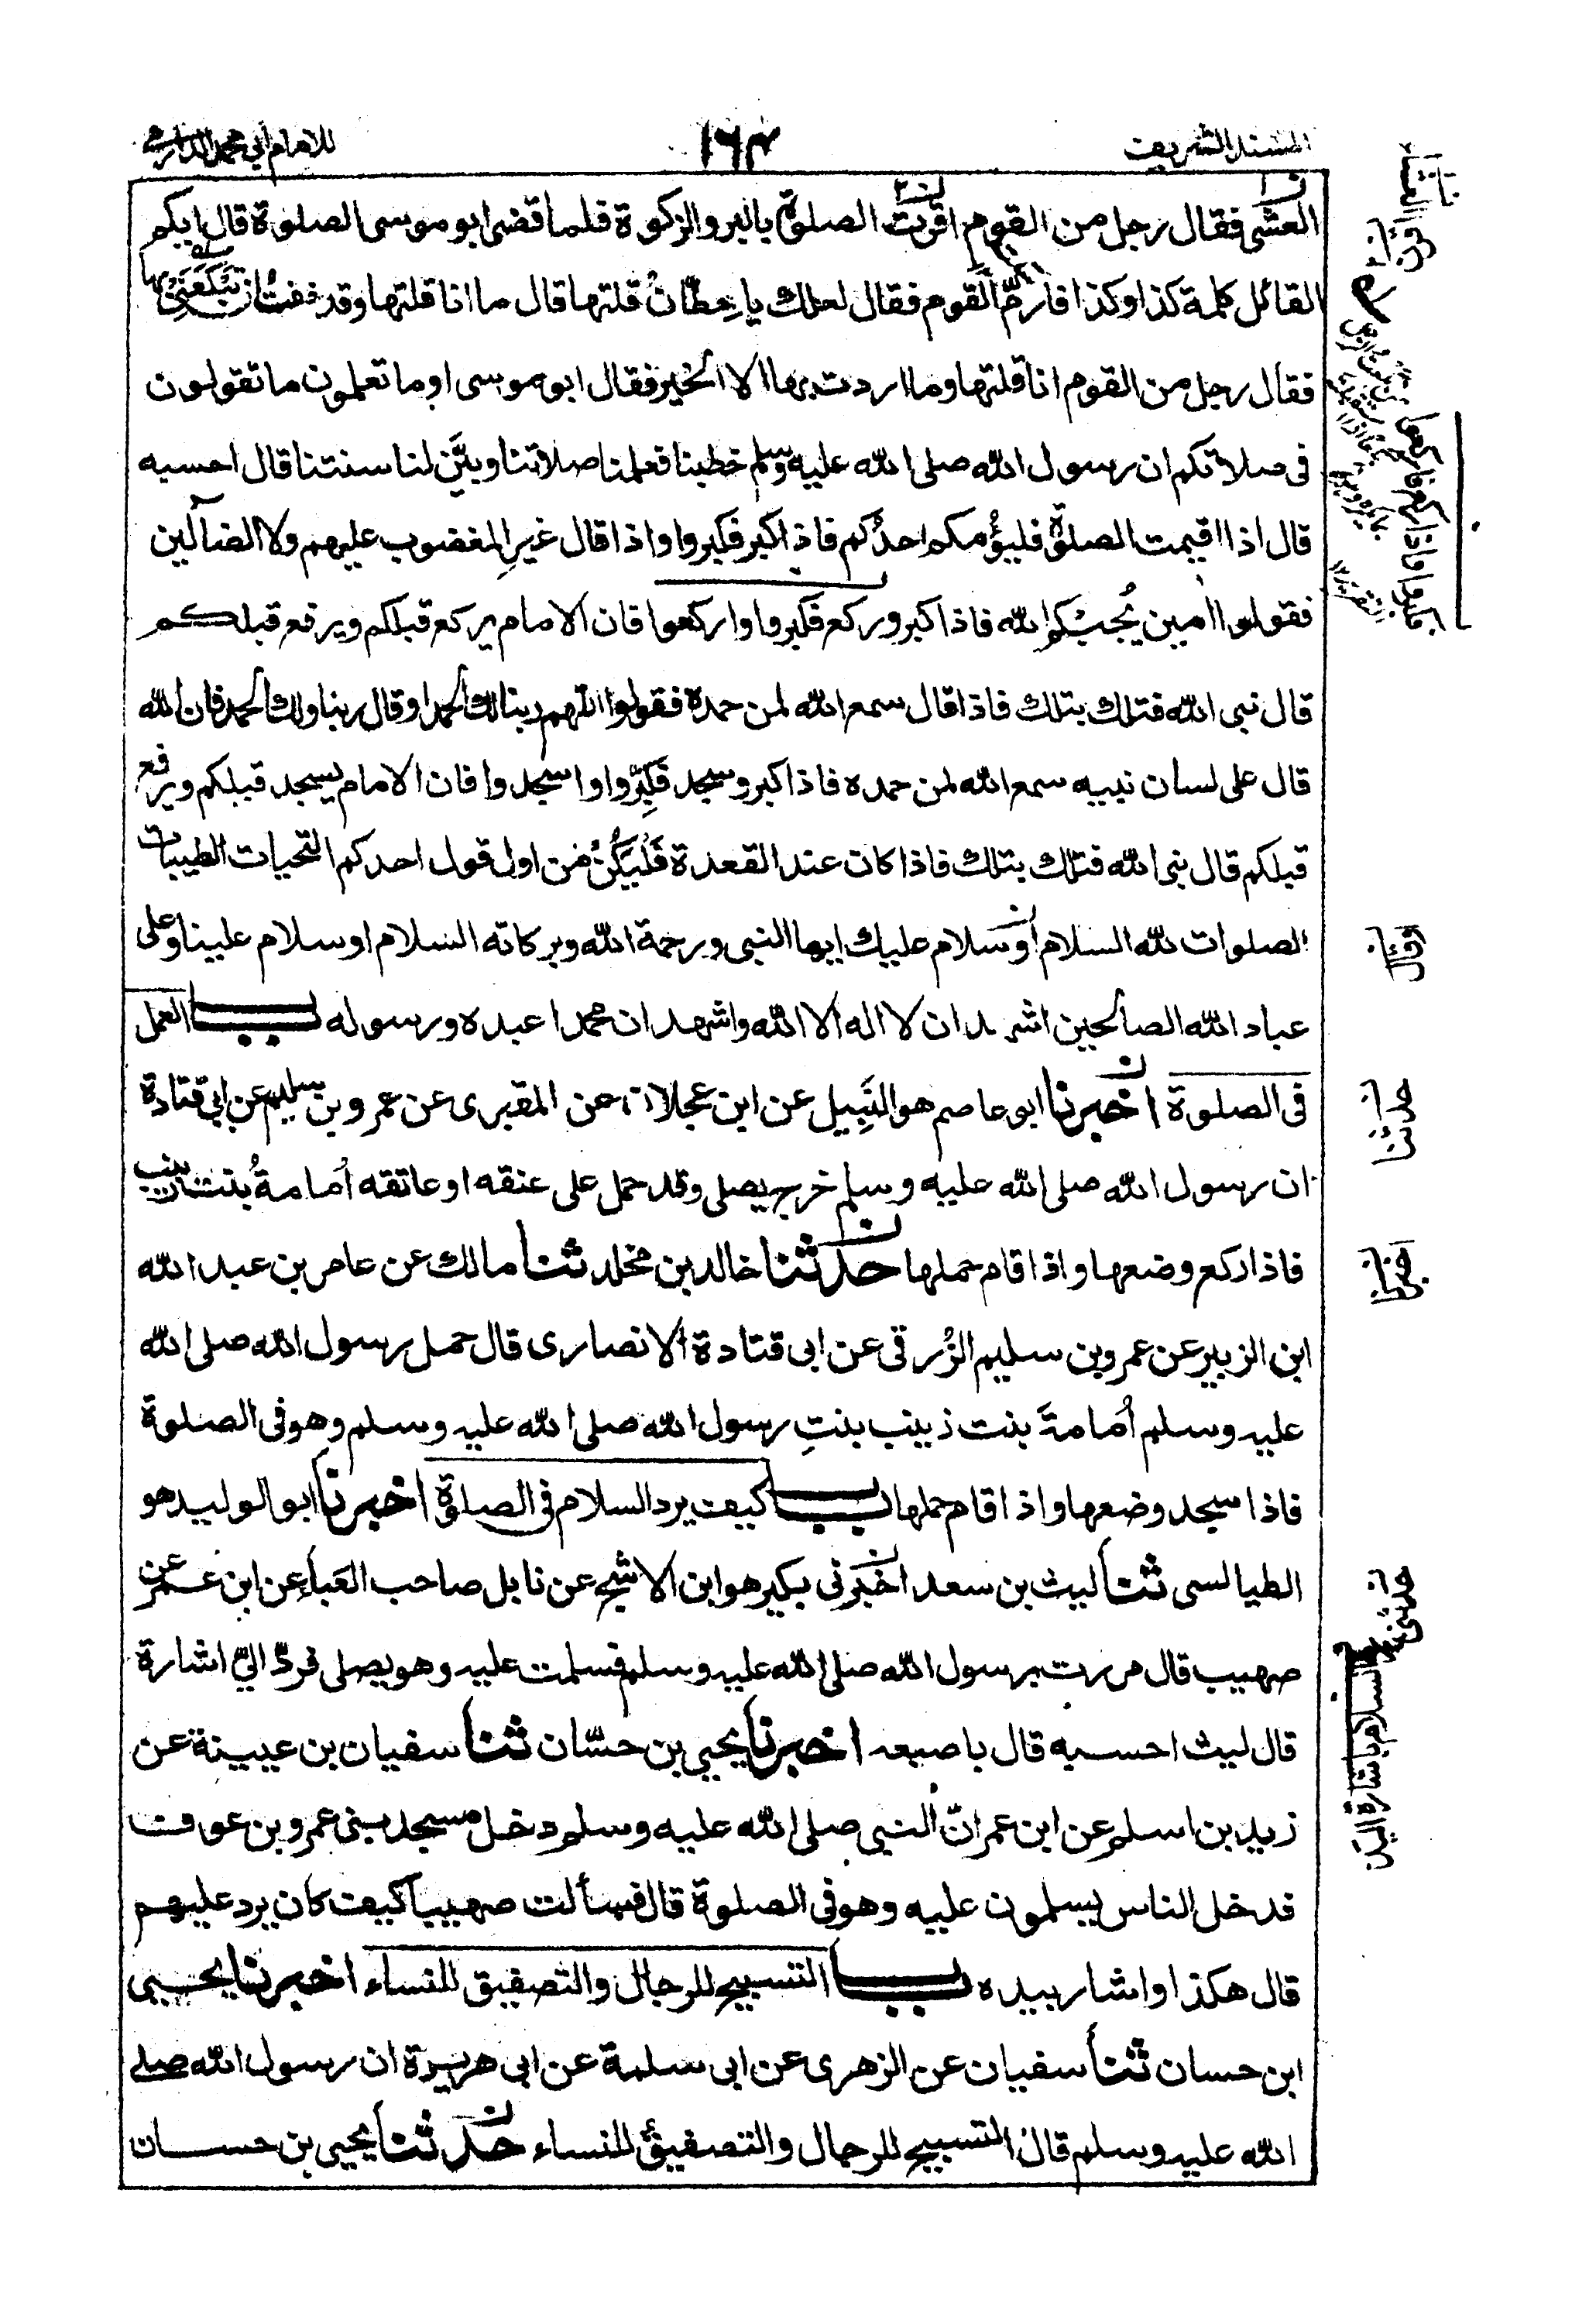 المسند الشريف ١٦٣ للامام ابي محمد الدارمي
العشي فقال رجل من القوم اقرت الصلوة بالبر والزكوة فلما قضى ابو موسى الصلوة قال ايكم
القائل كلمة كذا وكذا فارمّ القوم فقال لعلك يا حِطّانُ قلتها قال ما انا قلتها وقد خفتُ ان تَبْكَعَنِيْ بها
فقال رجل من القوم انا قلتها وما اردت بها الا الخير فقال ابو موسى او ما تعلمون ما تقولون
فى صلاتكم ان رسول الله صلى الله عليه وسلم خطبنا فعلمنا صلاتنا وبيَّن لنا سنتنا قال احسبه
قال اذا اقيمت الصلوة فليؤُمكم احدُكم فاذا كبر فكبروا واذا قال غيرِ المغضوب عليهم ولا الضآلين
فقولوا امين يُجبْكم الله فاذا كبر وركع فكبروا واركعوا فان الامام يركع قبلكم ويرفع قبلكم
قال نبى الله فتلك بتلك فاذا قال سمع الله لمن حمدة فقولوا اللهم ربنا لك الحمد او قال ربنا ولك الحمد فان الله
قال على لسان نبيه سمع الله لمن حمده فاذا كبر وسجد فكبِّروا واسجدوا فان الامام يسجد قبلكم ويرفع
قبلكم قال نبى الله فتلك بتلك فاذا كان عند القعدة فَلْيَكُنْ من اول قول احدكم التحيات الطيبات
الصلوات لله السلام او سلام عليك ايها النبى ورحمة الله وبركاته السلام او سلام علينا وعلى
عباد الله الصالحين اشهد ان لا اله الا الله واشهد ان محمدا عبده ورسوله باب العمل
فى الصلوة اخبرنا ابو عاصم هو النَّبِيل عن ابن عجلان عن المقبرى عن عمرو بن سليم عن ابي قتادة
ان رسول الله صلى الله عليه وسلم خرج يصلى وقد حمل على عنقه او عاتقه اُمامةُ بنت زينب
فاذا ركع وضعها واذا قام حملها حدثنا خالد بن مخلد ثنا مالك عن عامر بن عبد الله
ابن الزبير عن عمرو بن سليم الزُرقى عن ابى قتادة الانصارى قال حمل رسول الله صلى الله
عليه وسلم اُمامةَ بنت زينب بنتِ رسول الله صلى الله عليه وسلم وهو فى الصلوة
فاذا سجد وضعها واذا قام حملها باب كيف يرد السلام فى الصلوة اخبرنا ابو الوليد هو
الطيالسى ثنا ليث بن سعد اخبرنى بكير هو ابن الاشج عن نابل صاحب العَباء عن ابن عمر عن
صهيب قال مررت برسول الله صلى الله عليه وسلم فسلمت عليه وهو يصلى فردّ اليّ اشارة
قال ليث احسبه قال باصبعه اخبرنا يحيى بن حسّان ثنا سفيان بن عيينة عن
زيد بن اسلم عن ابن عمر انّ النبى صلى الله عليه وسلم دخل مسجد بنى عمرو بن عوف
فدخل الناس يسلمون عليه وهو فى الصلوة قال فسألت صهيبا كيف كان يرد عليهم
قال هكذا واشار بيده باب التسبيح للرجال والتصفيق للنساء اخبرنا يحيى
ابن حسان ثنا سفيان عن الزهرى عن ابى سلمة عن ابى هريرة ان رسول الله صلى
الله عليه وسلم قال التسبيح للرجال والتصفيق للنساء حدثنا يحيى بن حسان
فكبروا واذا ركع فاركعوا
وقال
حدثنا
اخبرنا
حدثنى
السلام باشارة اليد